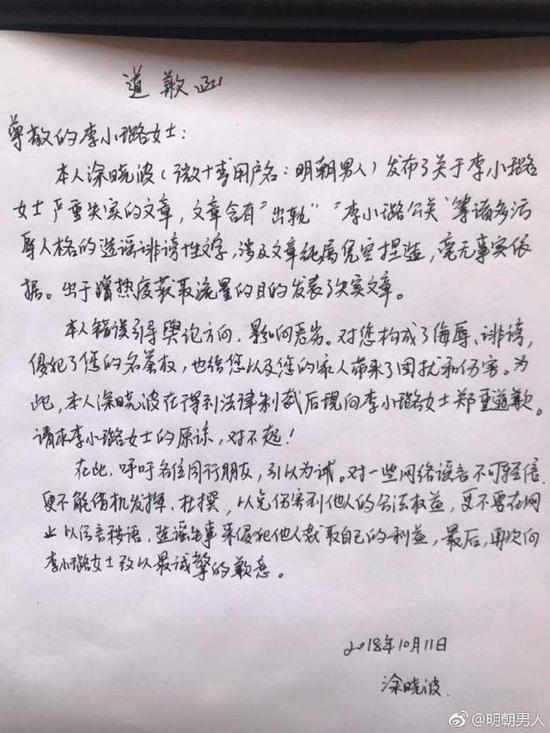 道歉函
尊敬的李小璐女士：
本人涂晓波（微博用户名：明朝男人）发布了关于李小璐
女士严重失实的文章，文章含有“出轨”“李小璐公关”等诸多污
辱人格的造谣诽谤性文字，涉及文章纯属凭空捏造，毫无事实依
据。出于蹭热度获取流量的目的发表了失实文章。
本人错误引导舆论方向，影响恶劣。对您构成了侮辱、诽谤，
侵犯了您的名誉权，也给您以及您的家人带来了困扰和伤害。为
此，本人涂晓波在得到法律制裁后现向李小璐女士郑重道歉。
请求李小璐女士的原谅，对不起！
在此，呼吁各位同行朋友，引以为诫。对一些网络谣言不可轻信，
更不能借机发挥、杜撰，以免伤害到他人的合法权益，更不要在网
上以污言秽语、造谣生事来侵犯他人获取自己的利益，最后，再次向
李小璐女士致以最诚挚的歉意。
2018年10月11日
涂晓波
@明朝男人